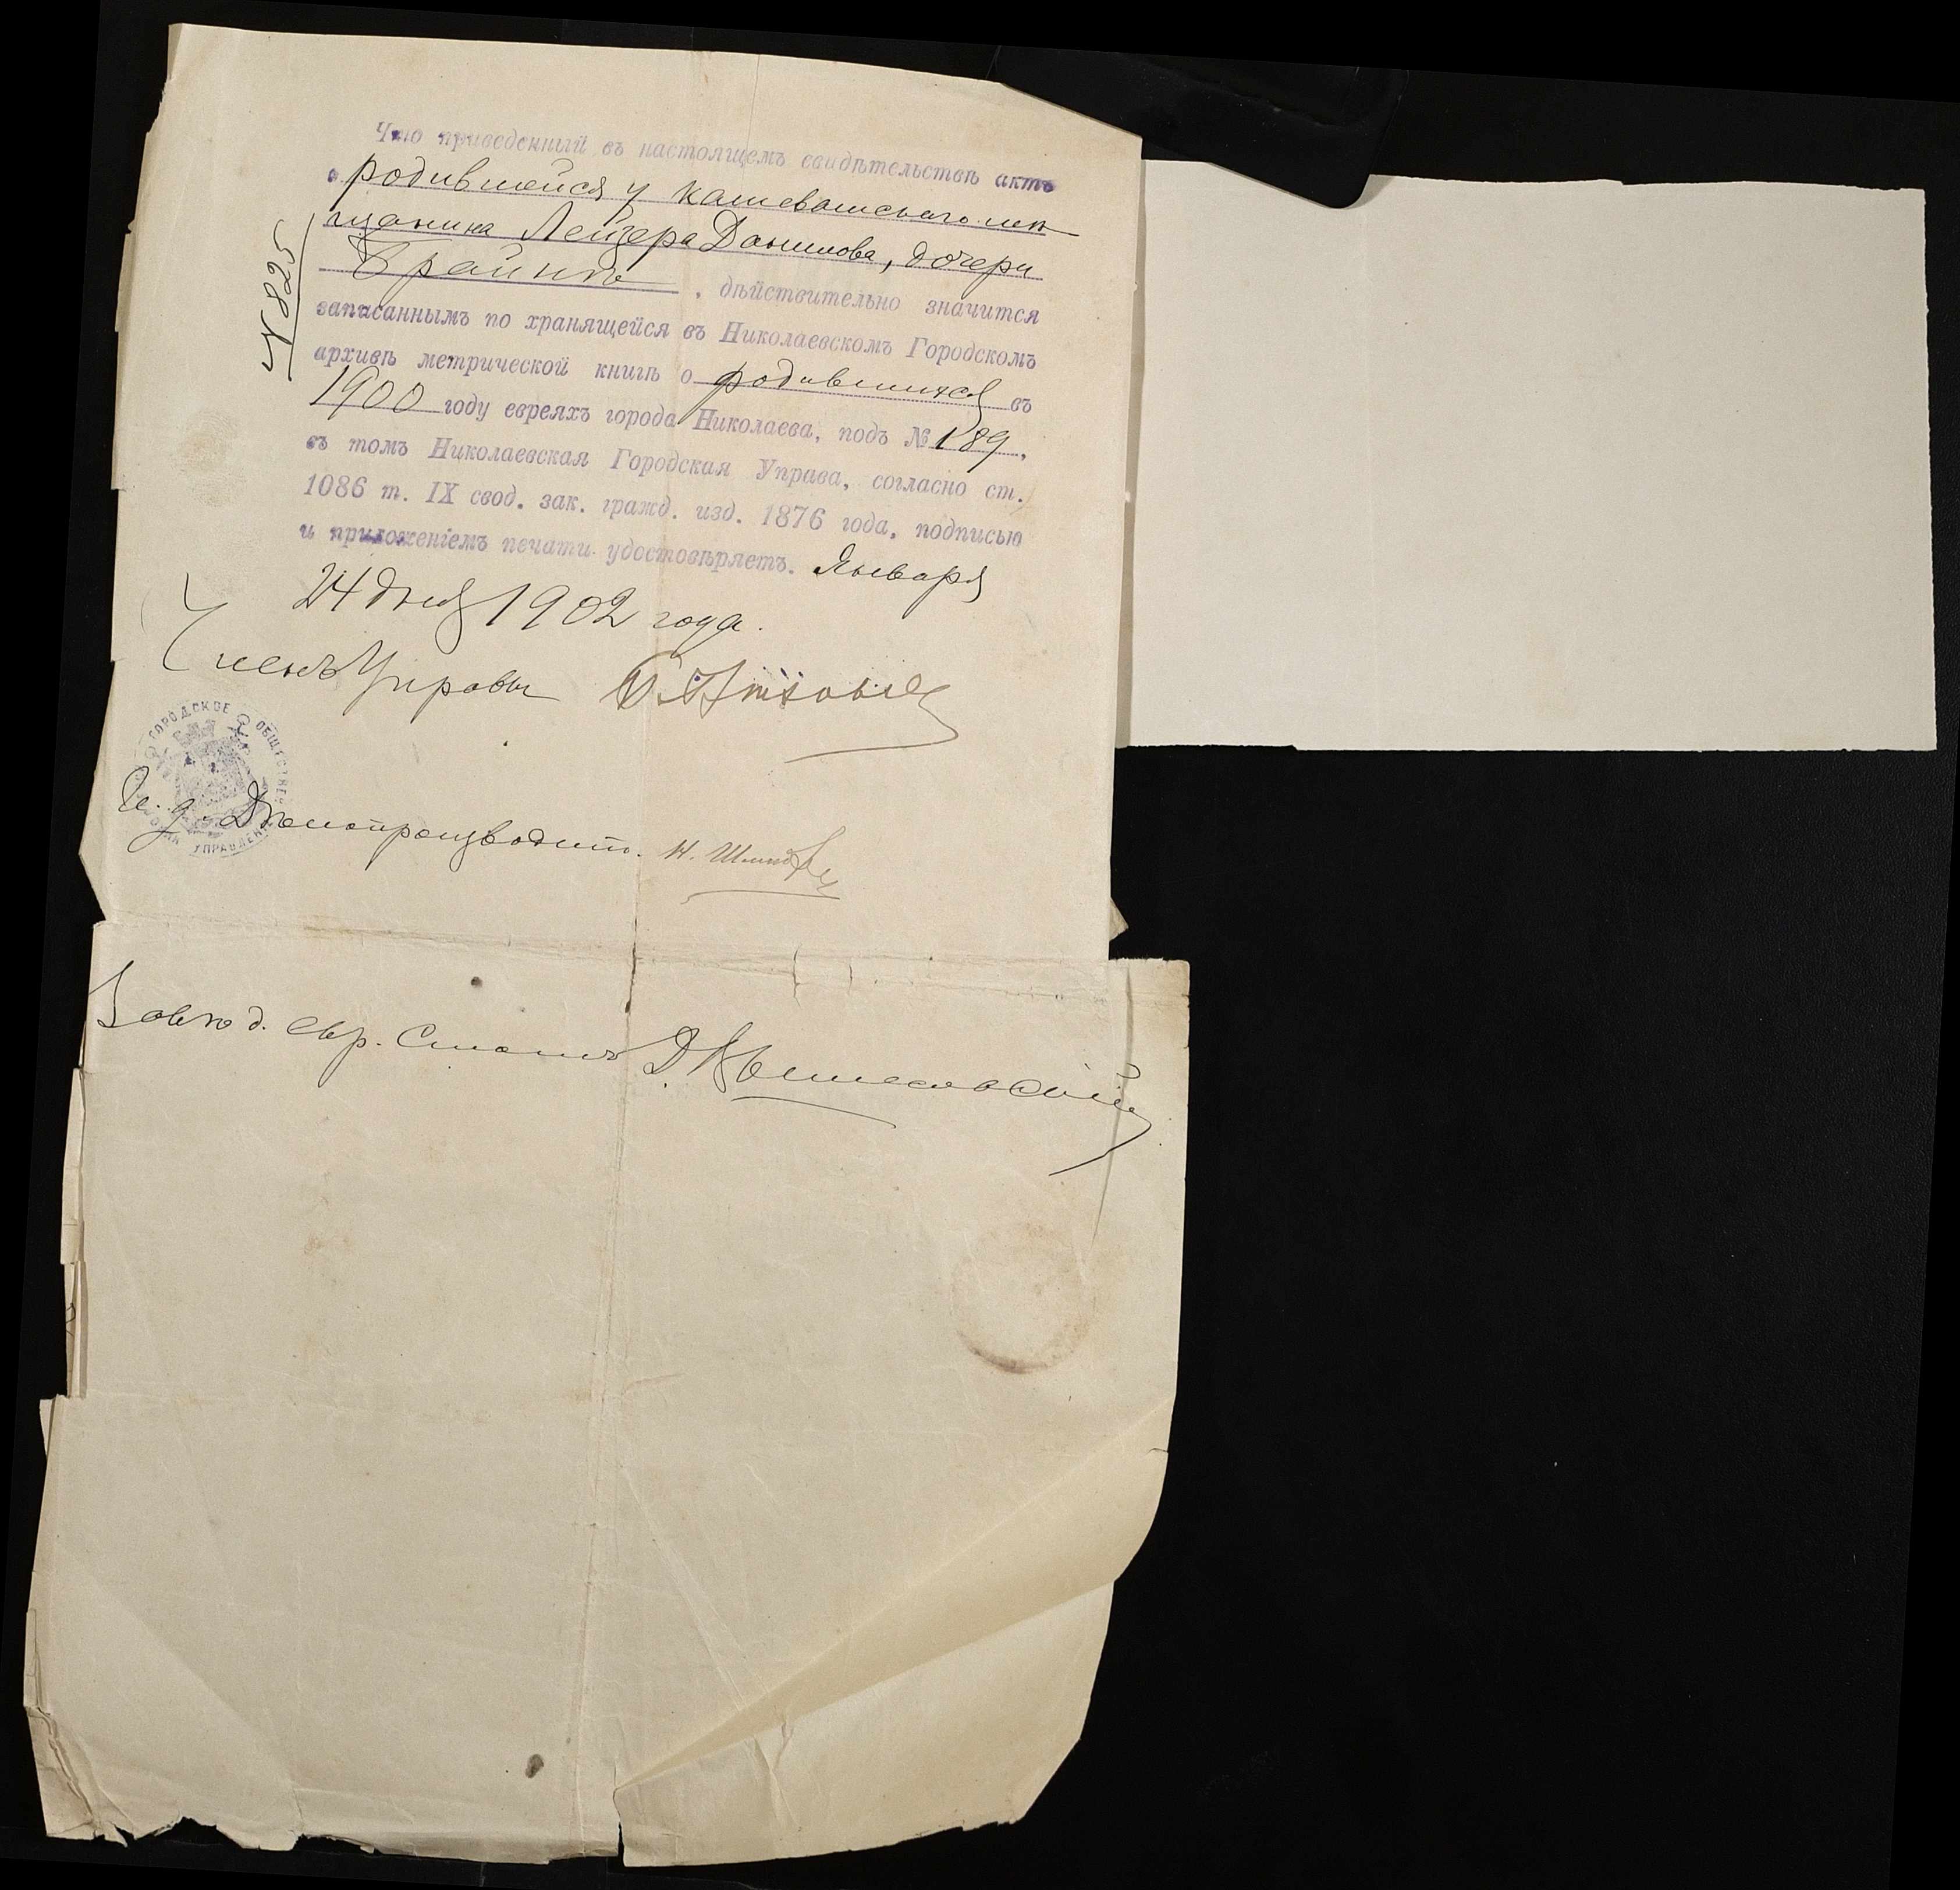 Что приведенный въ настоящемъ свидѣтельствѣ актъ
о родившейся у кошеватскаго мѣ
щанина Лейзера Данилова, дочери
Брайнѣ, дѣйствительно значится
записаннымъ по хранящейся въ Николаевскомъ Городскомъ
архивѣ метрической книгѣ о родившихся въ
1900 году евреяхъ города Николаева, подъ № 189,
въ томъ Николаевская Городская Управа, согласно ст.
1086 т. IX свод. зак. гражд. изд. 1876 года, подписью
и приложеніемъ печати удостовѣряетъ. Января
24 дня 1902 года.
№ 825
Членъ Управы
ГОРОДСКОЕ ОБЩЕСТВЕН УПРАВЛЕН
И. д. Дѣлопроизводит. Н.
Завѣд. евр. столомъ Д.